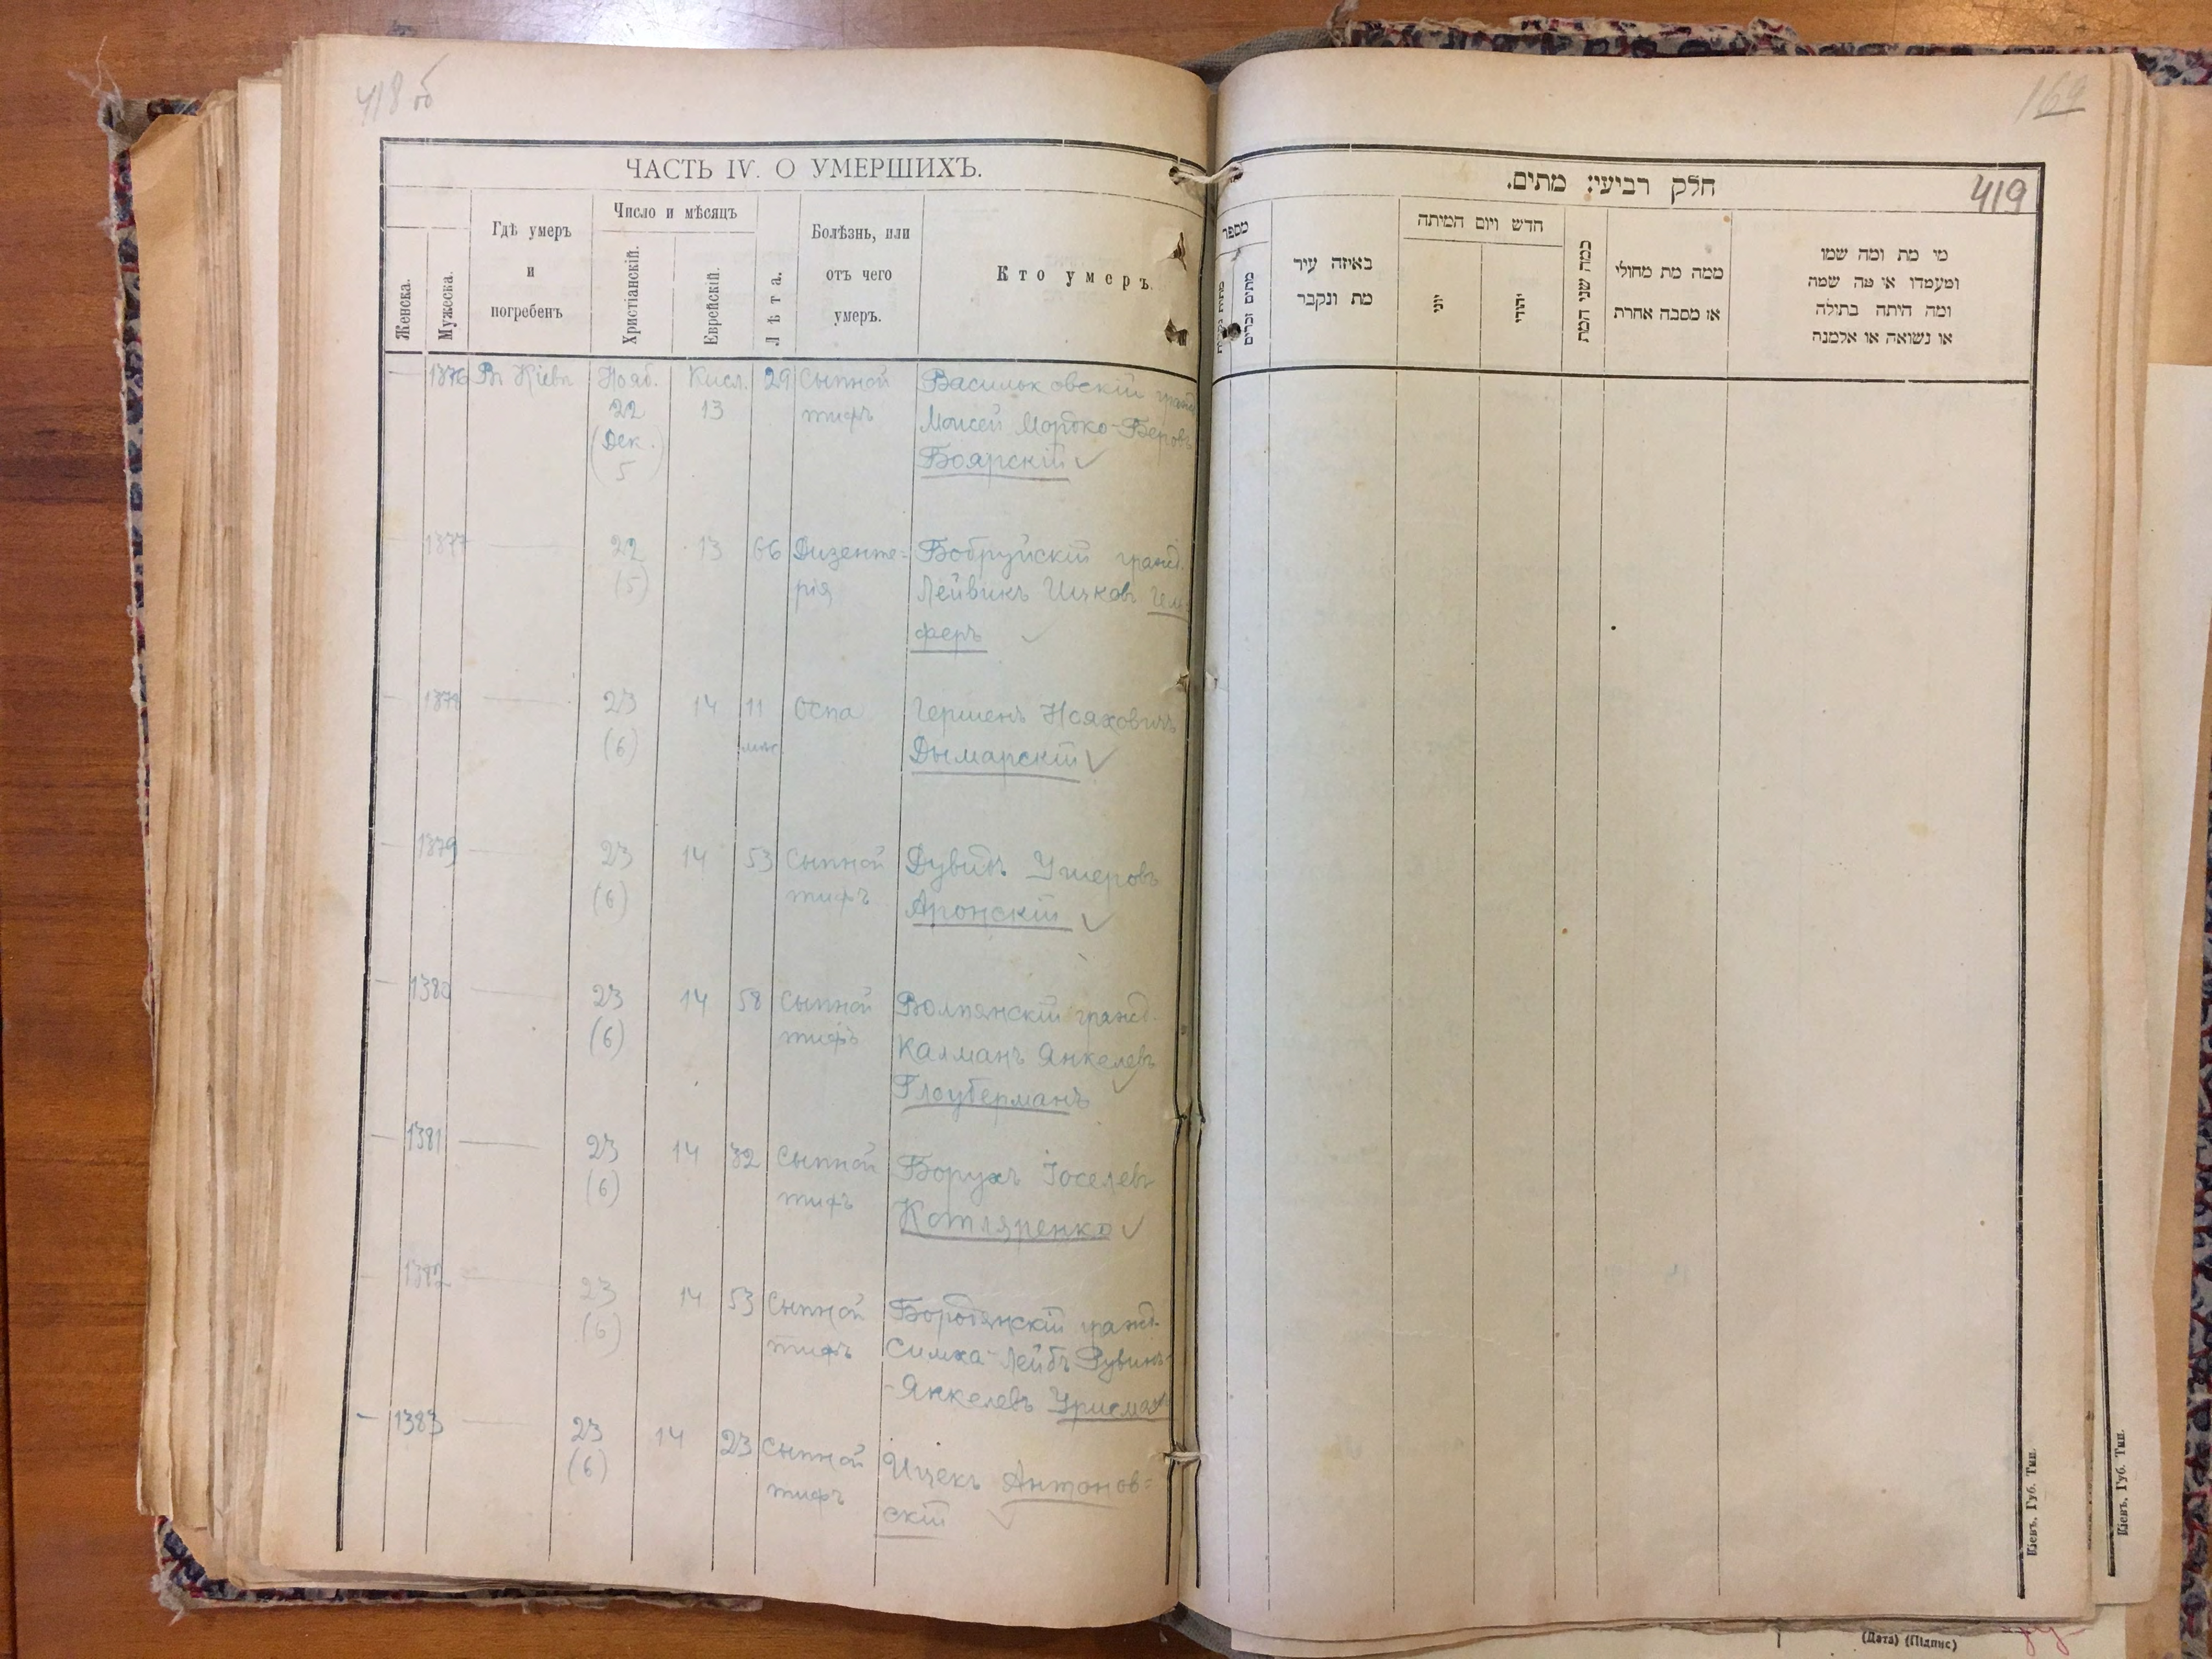 418 об
ЧАСТЬ IV. О УМЕРШИХЪ.
Женска.
Мужеска.
Гдѣ умеръ
и
погребенъ
Число и мѣсяцъ
Христіанскій.
Еврейскій.
Лѣта.
Болѣзнь, или
отъ чего
умеръ.
Кто умеръ.
— 1376 Въ Кіевѣ Нояб. Кисл. 29 Сыпной Васильковскій гражд.
22 13 тифъ Моисей Мордко-Беровъ
(Дек. Боярскій
5)
1377 — 22 13 66 Дизенте- Бобруйскій гражд.
(5) рія Лейвикъ Ицков
феръ
— 1378 — 23 14 11 Оспа Гершенъ Нояховичъ
(6) мѣс. Дымарскій
— 1379 — 23 14 53 Сыпной Дувидъ Ушеровъ
(6) тифъ Аронскій
— 1380 — 23 14 58 Сыпной Волпянскій гражд.
(6) тифъ Калманъ Янкелевъ
Глоуберманъ
— 1381 — 23 14 32 Сыпной Борухъ Іоселевъ
(6) тифъ Котляренко
— 1382 — 23 14 53 Сыпной Бородянскій гражд.
(6) тифъ Симха-Лейбъ Рувинъ-
-Янкелевъ Урисман
— 1383 — 23 14 23 Сыпной Ицекъ Антонов-
(6) тифъ скій
419
חלק רביעי: מתים.
מספר
מתים זכרים
באיזה עיר
מת ונקבר
חדש ויום המיתה
יוני
יהודי
כמה שני המת
ממה מת מחולי
או מסבה אחרת
מי מת ומה שמו
ומעמדו או מה שמה
ומה היתה בתולה
או נשואה או אלמנה
Кіевъ, Губ. Тип.
Кіевъ, Губ. Тип.
(Дата) (Підпис)